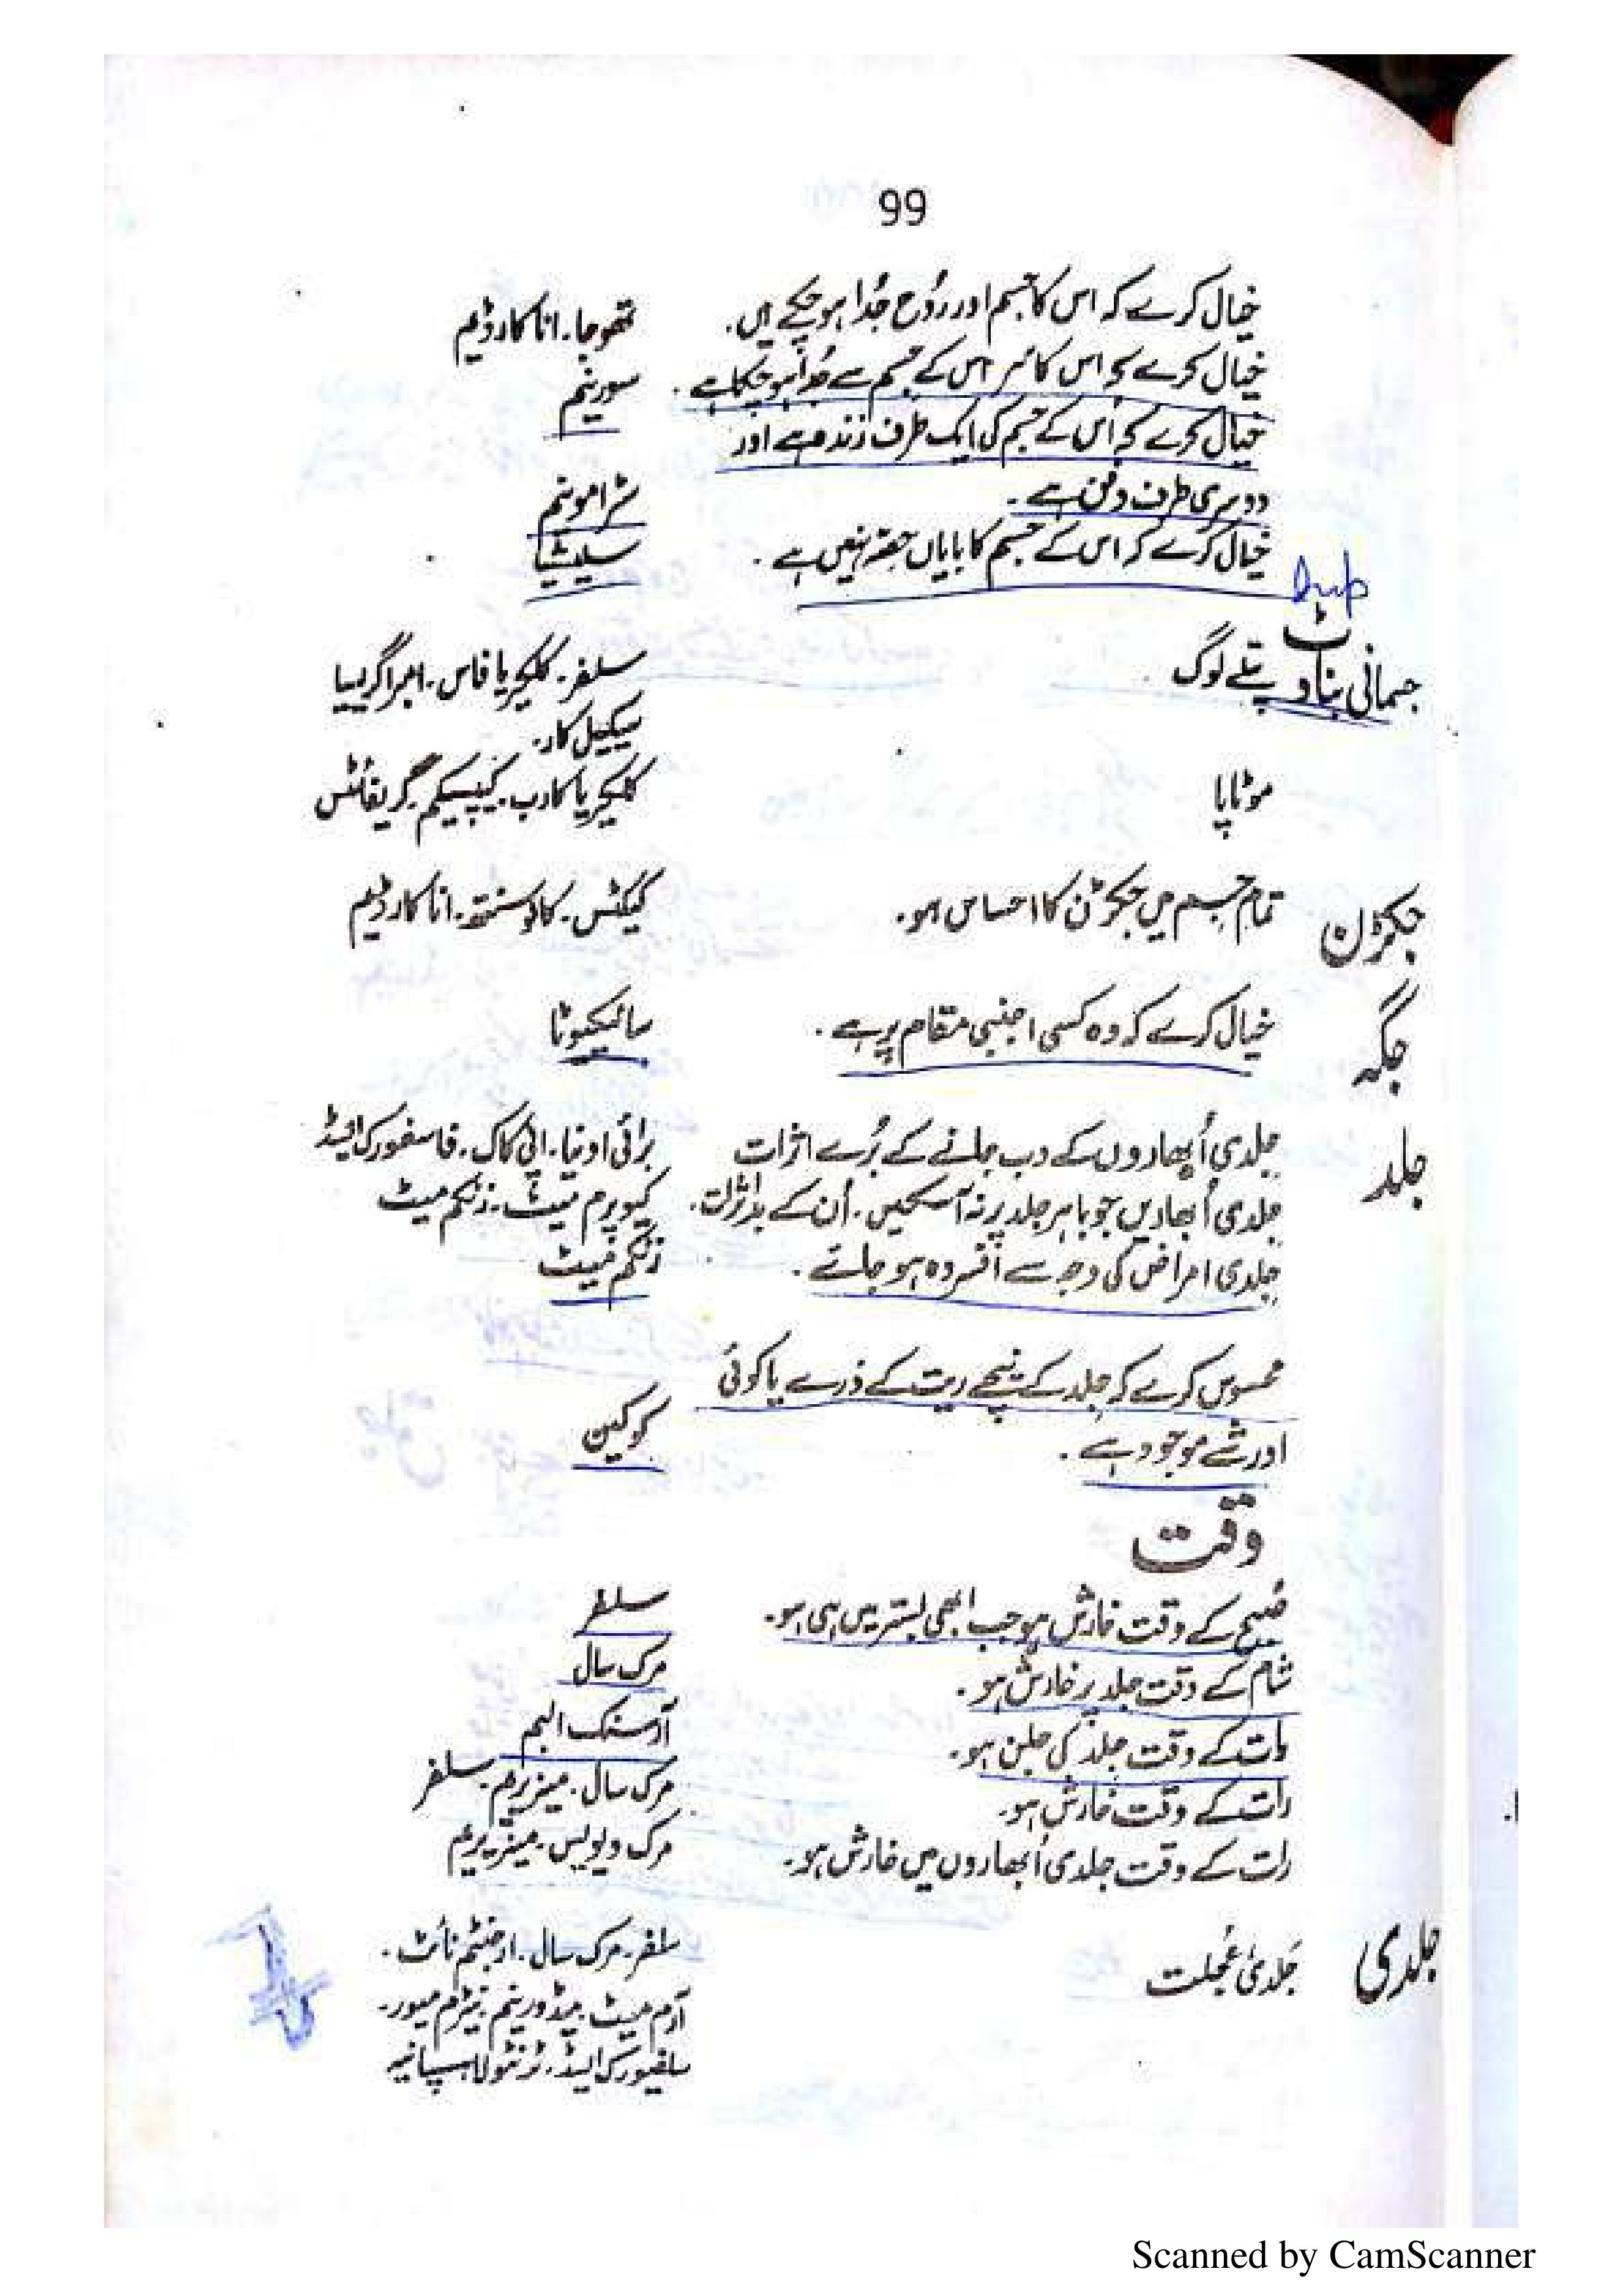 99
خیال کرے کہ اس کا جسم اور رُوح جُدا ہو چکے ہیں۔ تھوجا۔ اناکارڈیم
خیال کرے کہ اس کا سر اس کے جسم سے جُدا ہو چکا ہے۔ سورینم
خیال کرے کہ اُس کے جسم کی ایک طرف زندہ ہے اور
دوسری طرف دفن ہے۔ سٹرامونیم
خیال کرے کہ اس کے جسم کا بایاں حصّہ نہیں ہے۔ سلیشیا
جسمانی بناوٹ پتلے لوگ سلفر۔ کلکیریا فاس۔ امبراگریسیا
سیکیل کار۔
موٹاپا کلکیریا کارب۔ کیپسیکم۔ گریفائٹس
جکڑن تمام جسم میں جکڑن کا احساس ہو۔ کیکٹس۔ کاکوسنتھ۔ اناکارڈیم
جگہ خیال کرے کہ وہ کسی اجنبی مقام پر ہے۔ سائیکیوٹا
جلد جلدی اُبھاروں کے دب جانے کے بُرے اثرات برائی اونیا۔ اپی کاک۔ فاسفورک ایسڈ
جلدی اُبھاریں جو باہر جلد پر نہ آ سکیں۔ اُن کے بداثرات۔ کیوپرم میٹ۔ زنکم میٹ
جلدی امراض کی وجہ سے افسردہ ہو جائے۔ زنکم میٹ
محسوس کرے کہ جلد کے نیچے ریت کے ذرے یا کوئی
اور شے موجود ہے۔ کوکین
وقت
صُبح کے وقت خارش ہو جب ابھی بستر میں ہی ہو۔ سلفر
شام کے وقت جلد پر خارش ہو۔ مرک سال
رات کے وقت جلد کی جلن ہو۔ آرسنک البم
رات کے وقت خارش ہو۔ مرک سال۔ میزریم۔ سلفر
رات کے وقت جلدی اُبھاروں میں خارش ہو۔ مرک ویوس۔ میزیریم
جلدی جَلدی عُجلت سلفر۔ مرک سال۔ ارجنٹم نائٹ۔
آرم میٹ۔ میڈورینم۔ نیٹرم میور۔
سلفیورک ایسڈ۔ ٹرنٹولا ہسپانیہ
Scanned by CamScanner